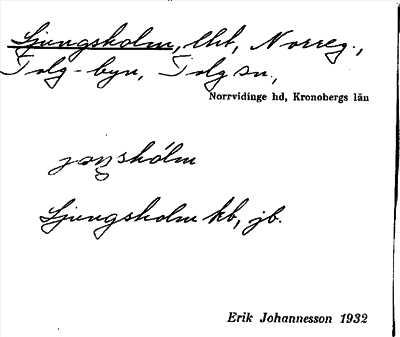 Ljungsholm, lht, Norreg.,
Tolg-byn, Tolg sn,
Norrvidinge hd, Kronobergs län
Ljungsholm kb, jb.
Erik Johannesson 1932